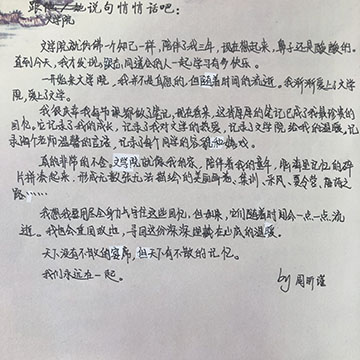 跟他/她说句悄悄话吧：
文学院
文学院就仿佛一个知己一样，陪伴了我三年，现在想起来，鼻子还是酸酸的。
直到今天，我才发觉，跟志同道合的人一起学习有多快乐。
一开始来文学院，我并不是真愿的，但随着时间的流逝，我渐渐爱上了文学
院，爱上了文学。
我很庆幸我每节课都做了笔记，现在看来，这青厚的笔记已成了我最珍贵的
回忆。它记录了我的成长，记录了我对文学的热爱，记录了文学院给我的温暖，记
录每个老师温馨的言语，记录了每个同学的容貌和嬉戏。
真的非常的不舍。文学院就像我的家，陪伴着我的童年，脑海里记忆的碎
片拼凑起来，形成无数张无法描绘的美丽画卷、集训、采风、夏令营、唐诗之
路……
我想我要用尽全身力气守住这些回忆，但如果，它们随着时间会一点一点流
逝。我也会重回故地，寻回这份深深埋藏在心底的温暖。
天下没有不散的宴席，但天下有不散的记忆。
我们永远在一起。
by 周昕瑾